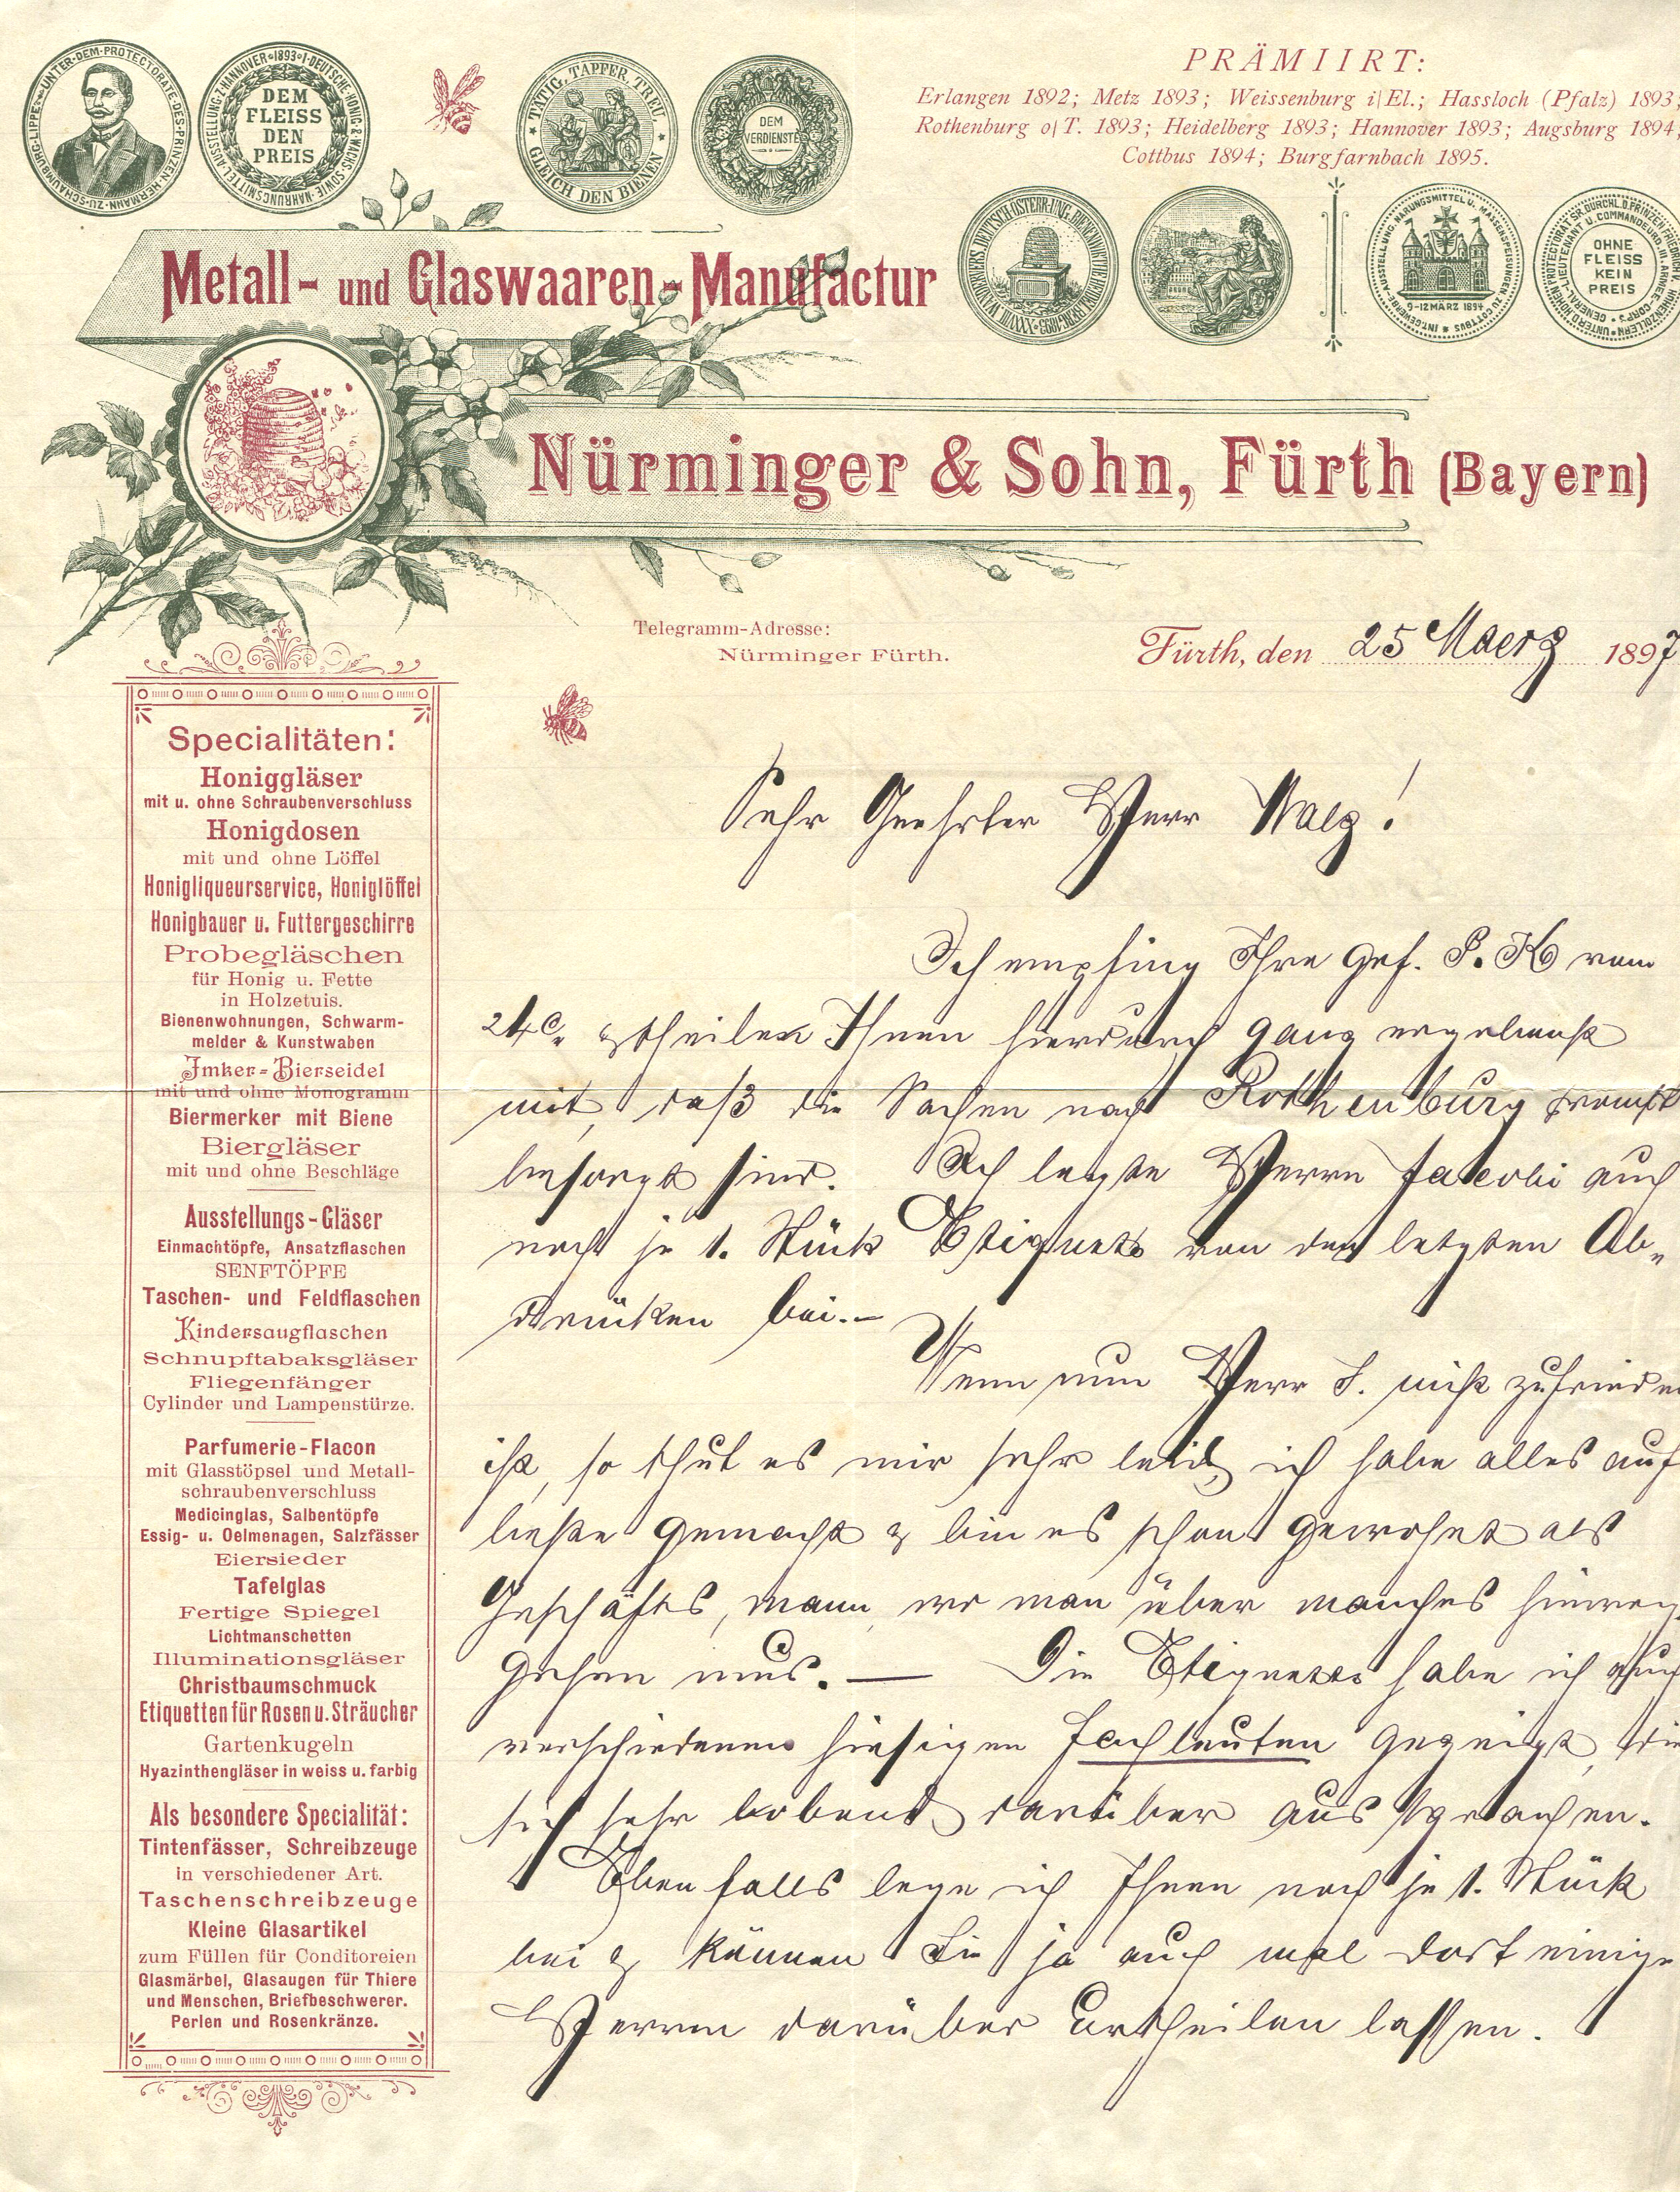 UNTER·DEM·PROTECTORATE·DES·PRINZEN·HERMANN·ZU·SCHAUMBURG·LIPPE
I·DEUTSCHE·HONIG·&·WACHS·SOWIE·NAHRUNGSMITTEL·AUSSTELLUNG·Z·HANNOVER·1893
DEM
FLEISS
DEN
PREIS
TÄTIG, TAPFER, TREU,
GLEICH DEN BIENEN
DEM
VERDIENSTE
PRÄMIIRT:
Erlangen 1892; Metz 1893; Weissenburg i|El.; Hassloch (Pfalz) 1893;
Rothenburg o|T. 1893; Heidelberg 1893; Hannover 1893; Augsburg 1894;
Cottbus 1894; Burgfarnbach 1895.
9-12 MÄRZ 1894
OHNE
FLEISS
KEIN
PREIS
Metall- und Glaswaaren-Manufactur
Nürminger & Sohn, Fürth (Bayern)
Telegramm-Adresse:
Nürminger Fürth.
Fürth, den 25 Maerz 1897
Specialitäten:
Honiggläser
mit u. ohne Schraubenverschluss
Honigdosen
mit und ohne Löffel
Honigliqueurservice, Honiglöffel
Honigbauer u. Futtergeschirre
Probegläschen
für Honig u. Fette
in Holzetuis.
Bienenwohnungen, Schwarm-
melder & Kunstwaben
Imker-Bierseidel
mit und ohne Monogramm
Biermerker mit Biene
Biergläser
mit und ohne Beschläge
Ausstellungs-Gläser
Einmachtöpfe, Ansatzflaschen
SENFTÖPFE
Taschen- und Feldflaschen
Kindersaugflaschen
Schnupftabaksgläser
Fliegenfänger
Cylinder und Lampenstürze.
Parfumerie-Flacon
mit Glasstöpsel und Metall-
schraubenverschluss
Medicinglas, Salbentöpfe
Essig- u. Oelmenagen, Salzfässer
Eiersieder
Tafelglas
Fertige Spiegel
Lichtmanschetten
Illuminationsgläser
Christbaumschmuck
Etiquetten für Rosen u. Sträucher
Gartenkugeln
Hyazinthengläser in weiss u. farbig
Als besondere Specialität:
Tintenfässer, Schreibzeuge
in verschiedener Art.
Taschenschreibzeuge
Kleine Glasartikel
zum Füllen für Conditoreien
Glasmärbel, Glasaugen für Thiere
und Menschen, Briefbeschwerer.
Perlen und Rosenkränze.
Sehr Geehrter Herr Walz!
Ich empfing Ihre gef. P. K vom
24 c. & theilen Ihnen hierdurch ganz ergebenst
mit, daß die Sachen nach Rothenburg prompt
besorgt sind. Ich legte Herrn Jakobi auch
noch je 1. Stück Etiquets von den letzten Ab-
drücken bei.-
Wenn nun Herr J. nicht zufrieden
ist, so thut es mir sehr leid, ich habe alles auf
beste gemacht & bin es schon gewohnt als
Geschäfts, mann, wo man über manches hinweg
gehen mus. — Die Etiquetts habe ich auch
verschiedenen hiesigen Fachleuten gezeigt, die
sich sehr lobend darüber aussprachen.
Ebenfalls lege ich Ihnen noch je 1. Stück
bei & können Sie ja auch mal dort einige
Herren darüber urtheilen lassen.